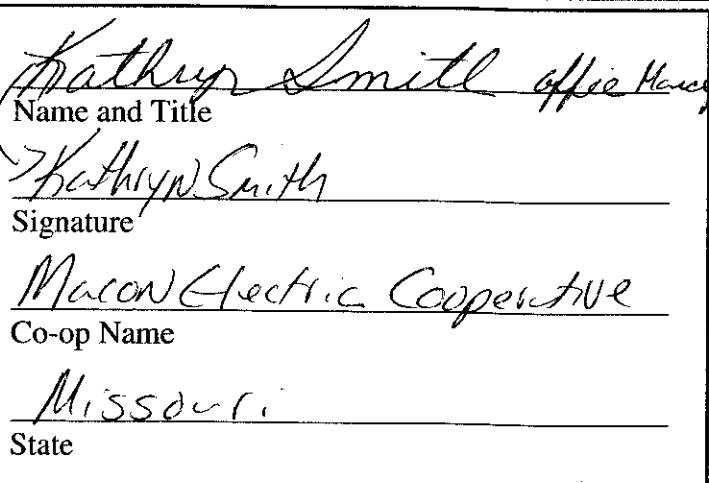 Kathryn Smith office
Name and Title
Kathryn Smith
Signature
Macon Electric Cooperative
Co-op Name
Missouri
State